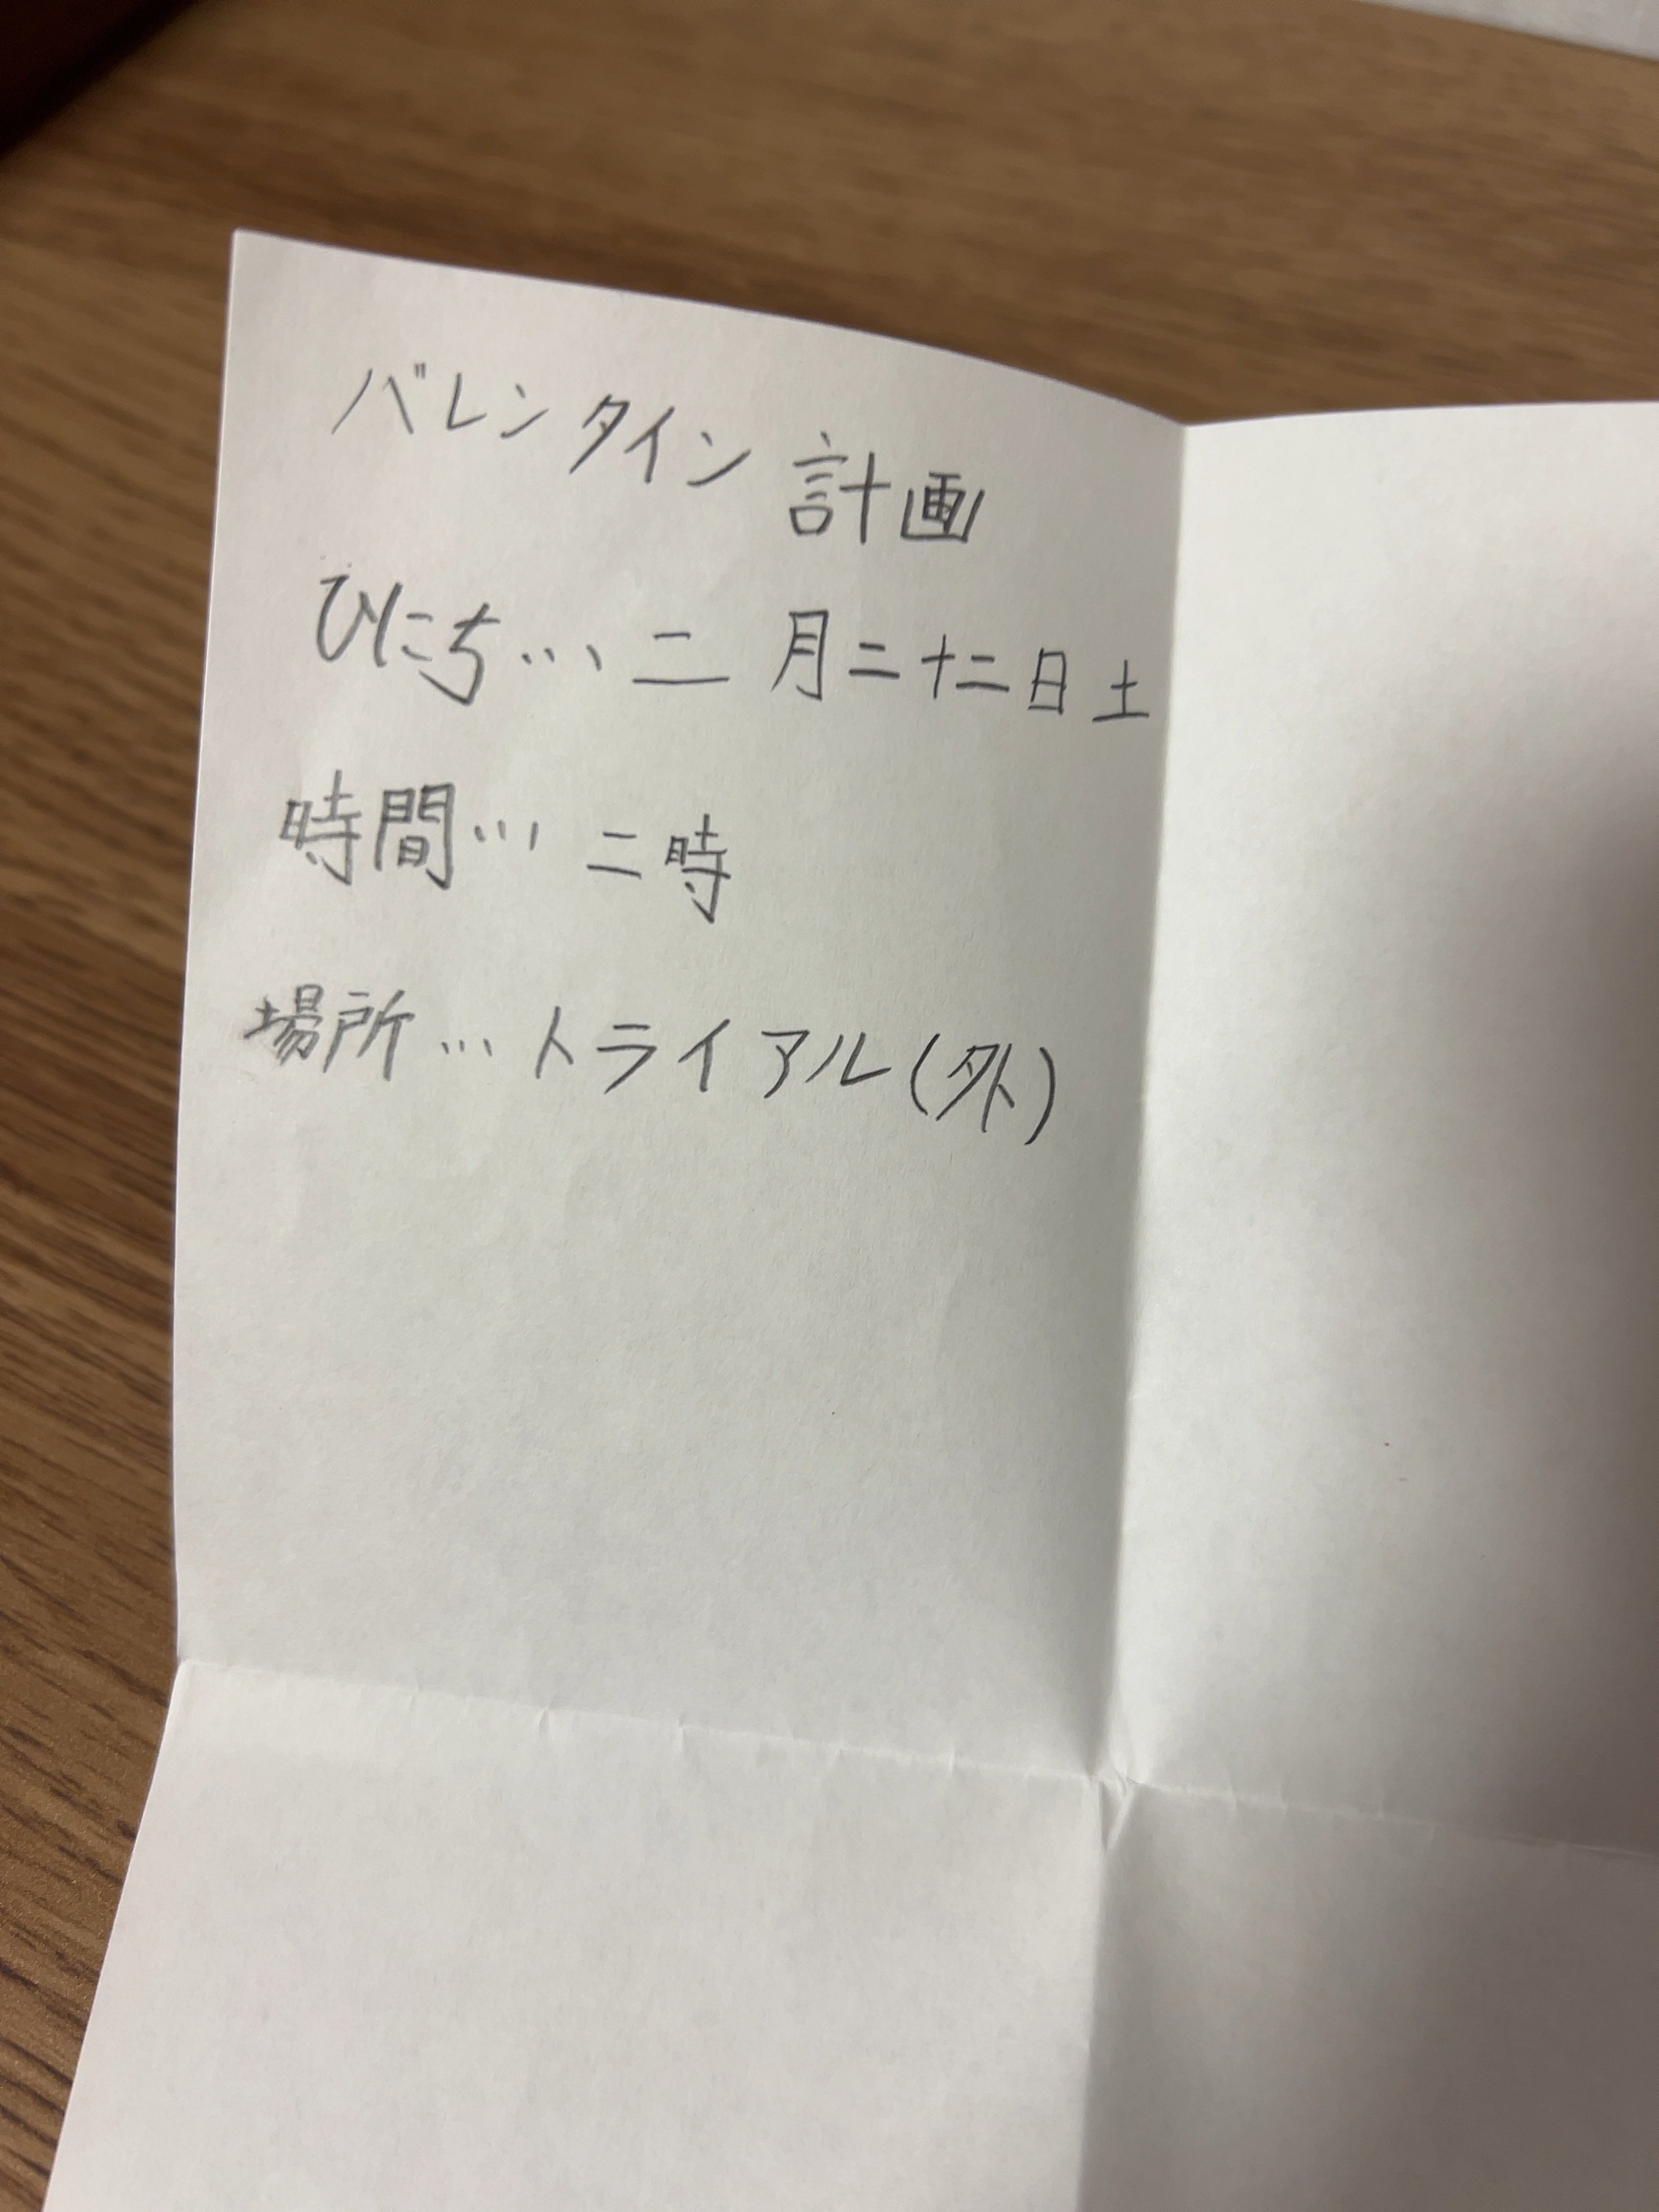 バレンタイン計画
ひにち…二月二十二日土
時間…二時
場所…トライアル(外)